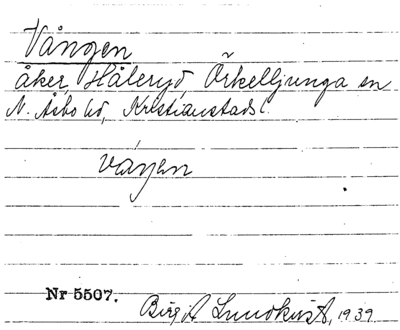 Vången
åker, Håleryd, Örkelljunga sn
N. Åsbo hd, Kristianstads l.
vaŋen
Nr 5507.
Birgit Lundkvist, 1939